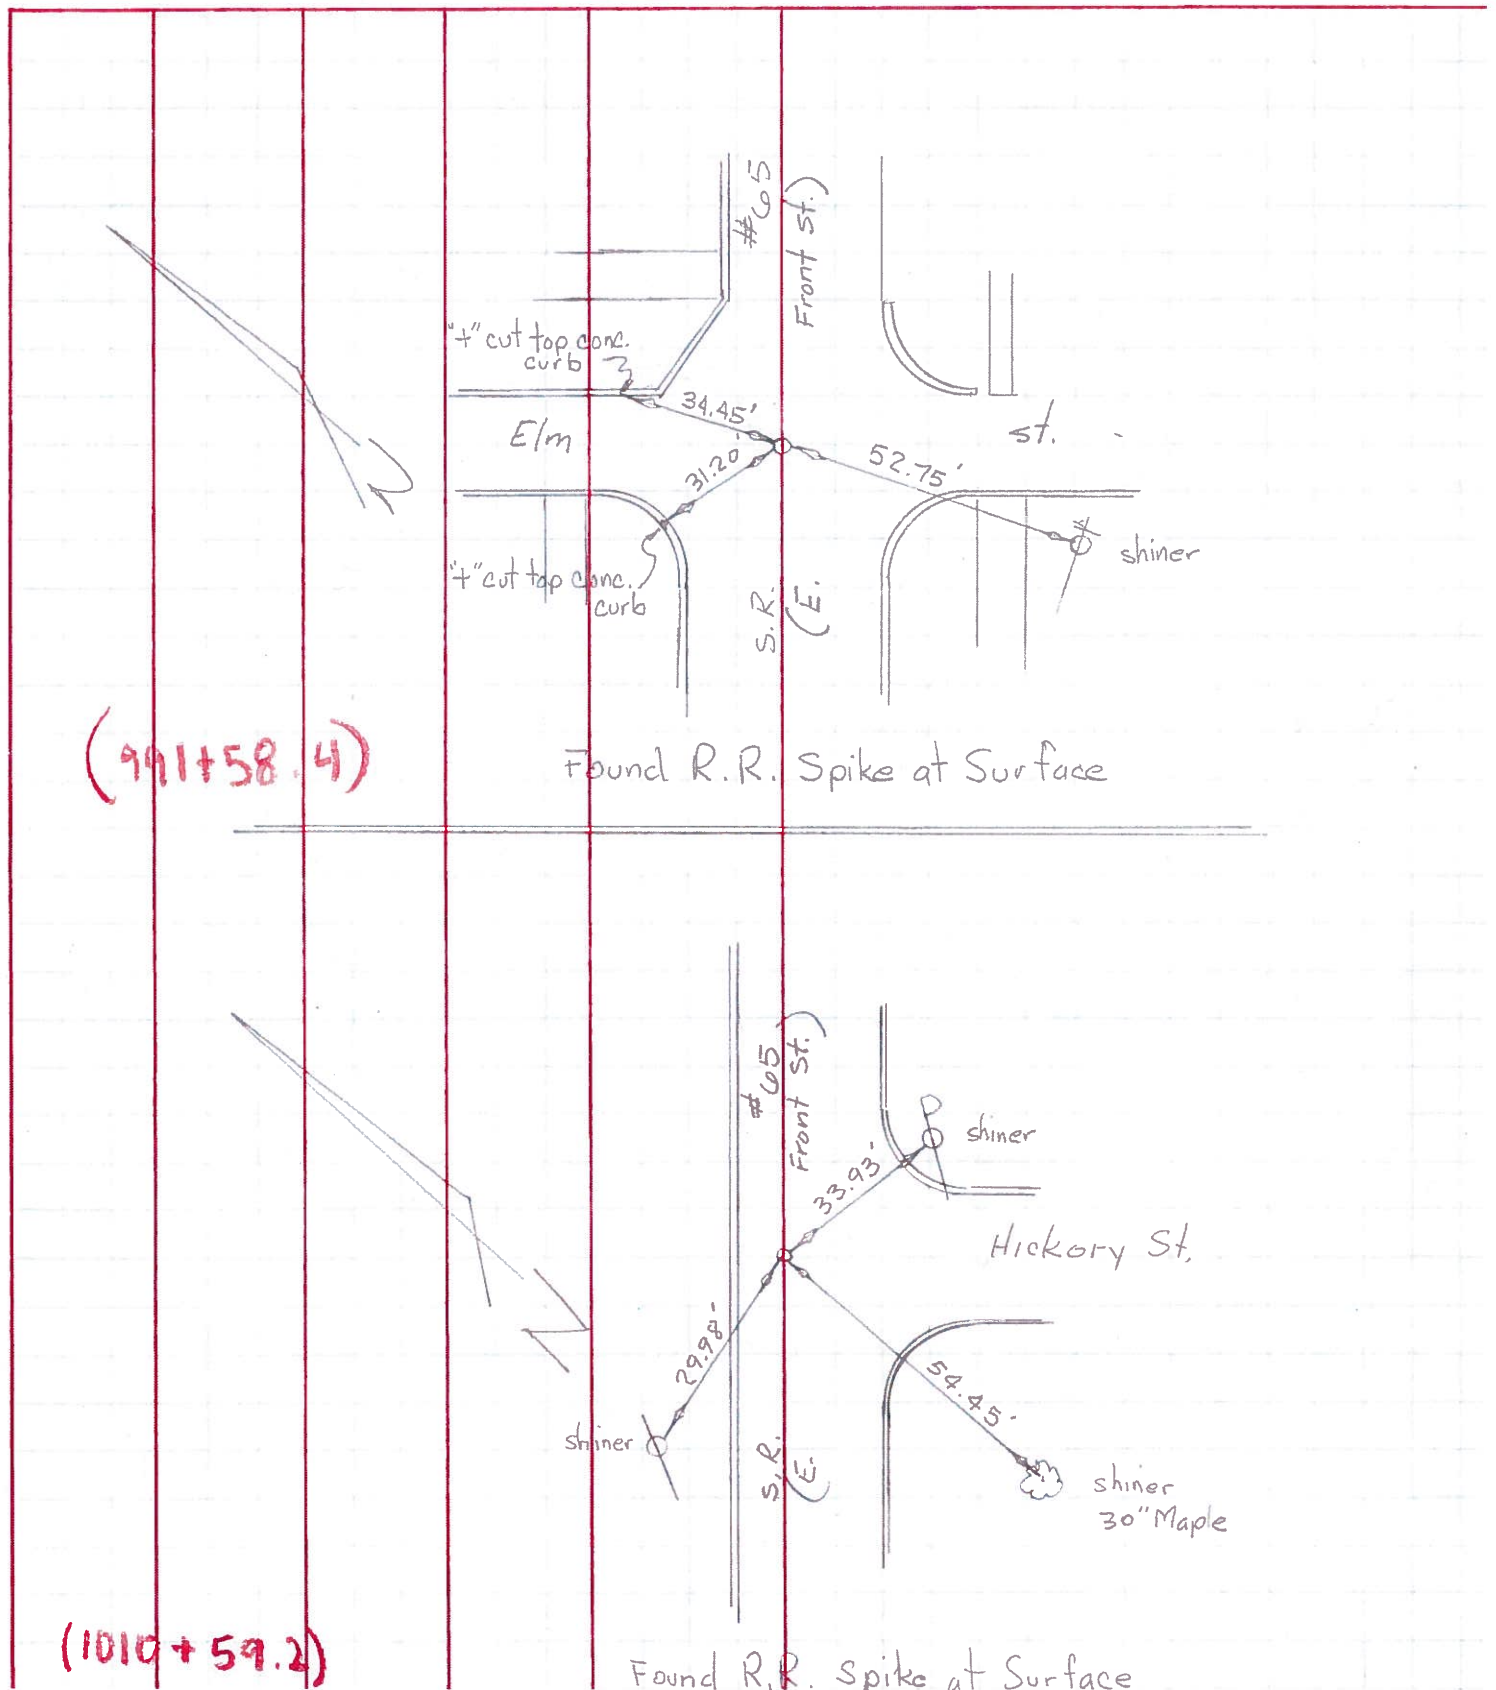 #65
Front St.)
"+" cut top conc.
curb
34.45'
Elm
St.
31.20'
52.75'
shiner
"+" cut top conc.
curb
S.R.
(E.
(991+58.4)
Found R.R. Spike at Surface
#65
Front St.)
shiner
33.93'
Hickory St.
N
29.98'
54.45'
shiner
S.R.
(E.
shiner
30" Maple
(1010+59.2)
Found R.R. Spike at Surface